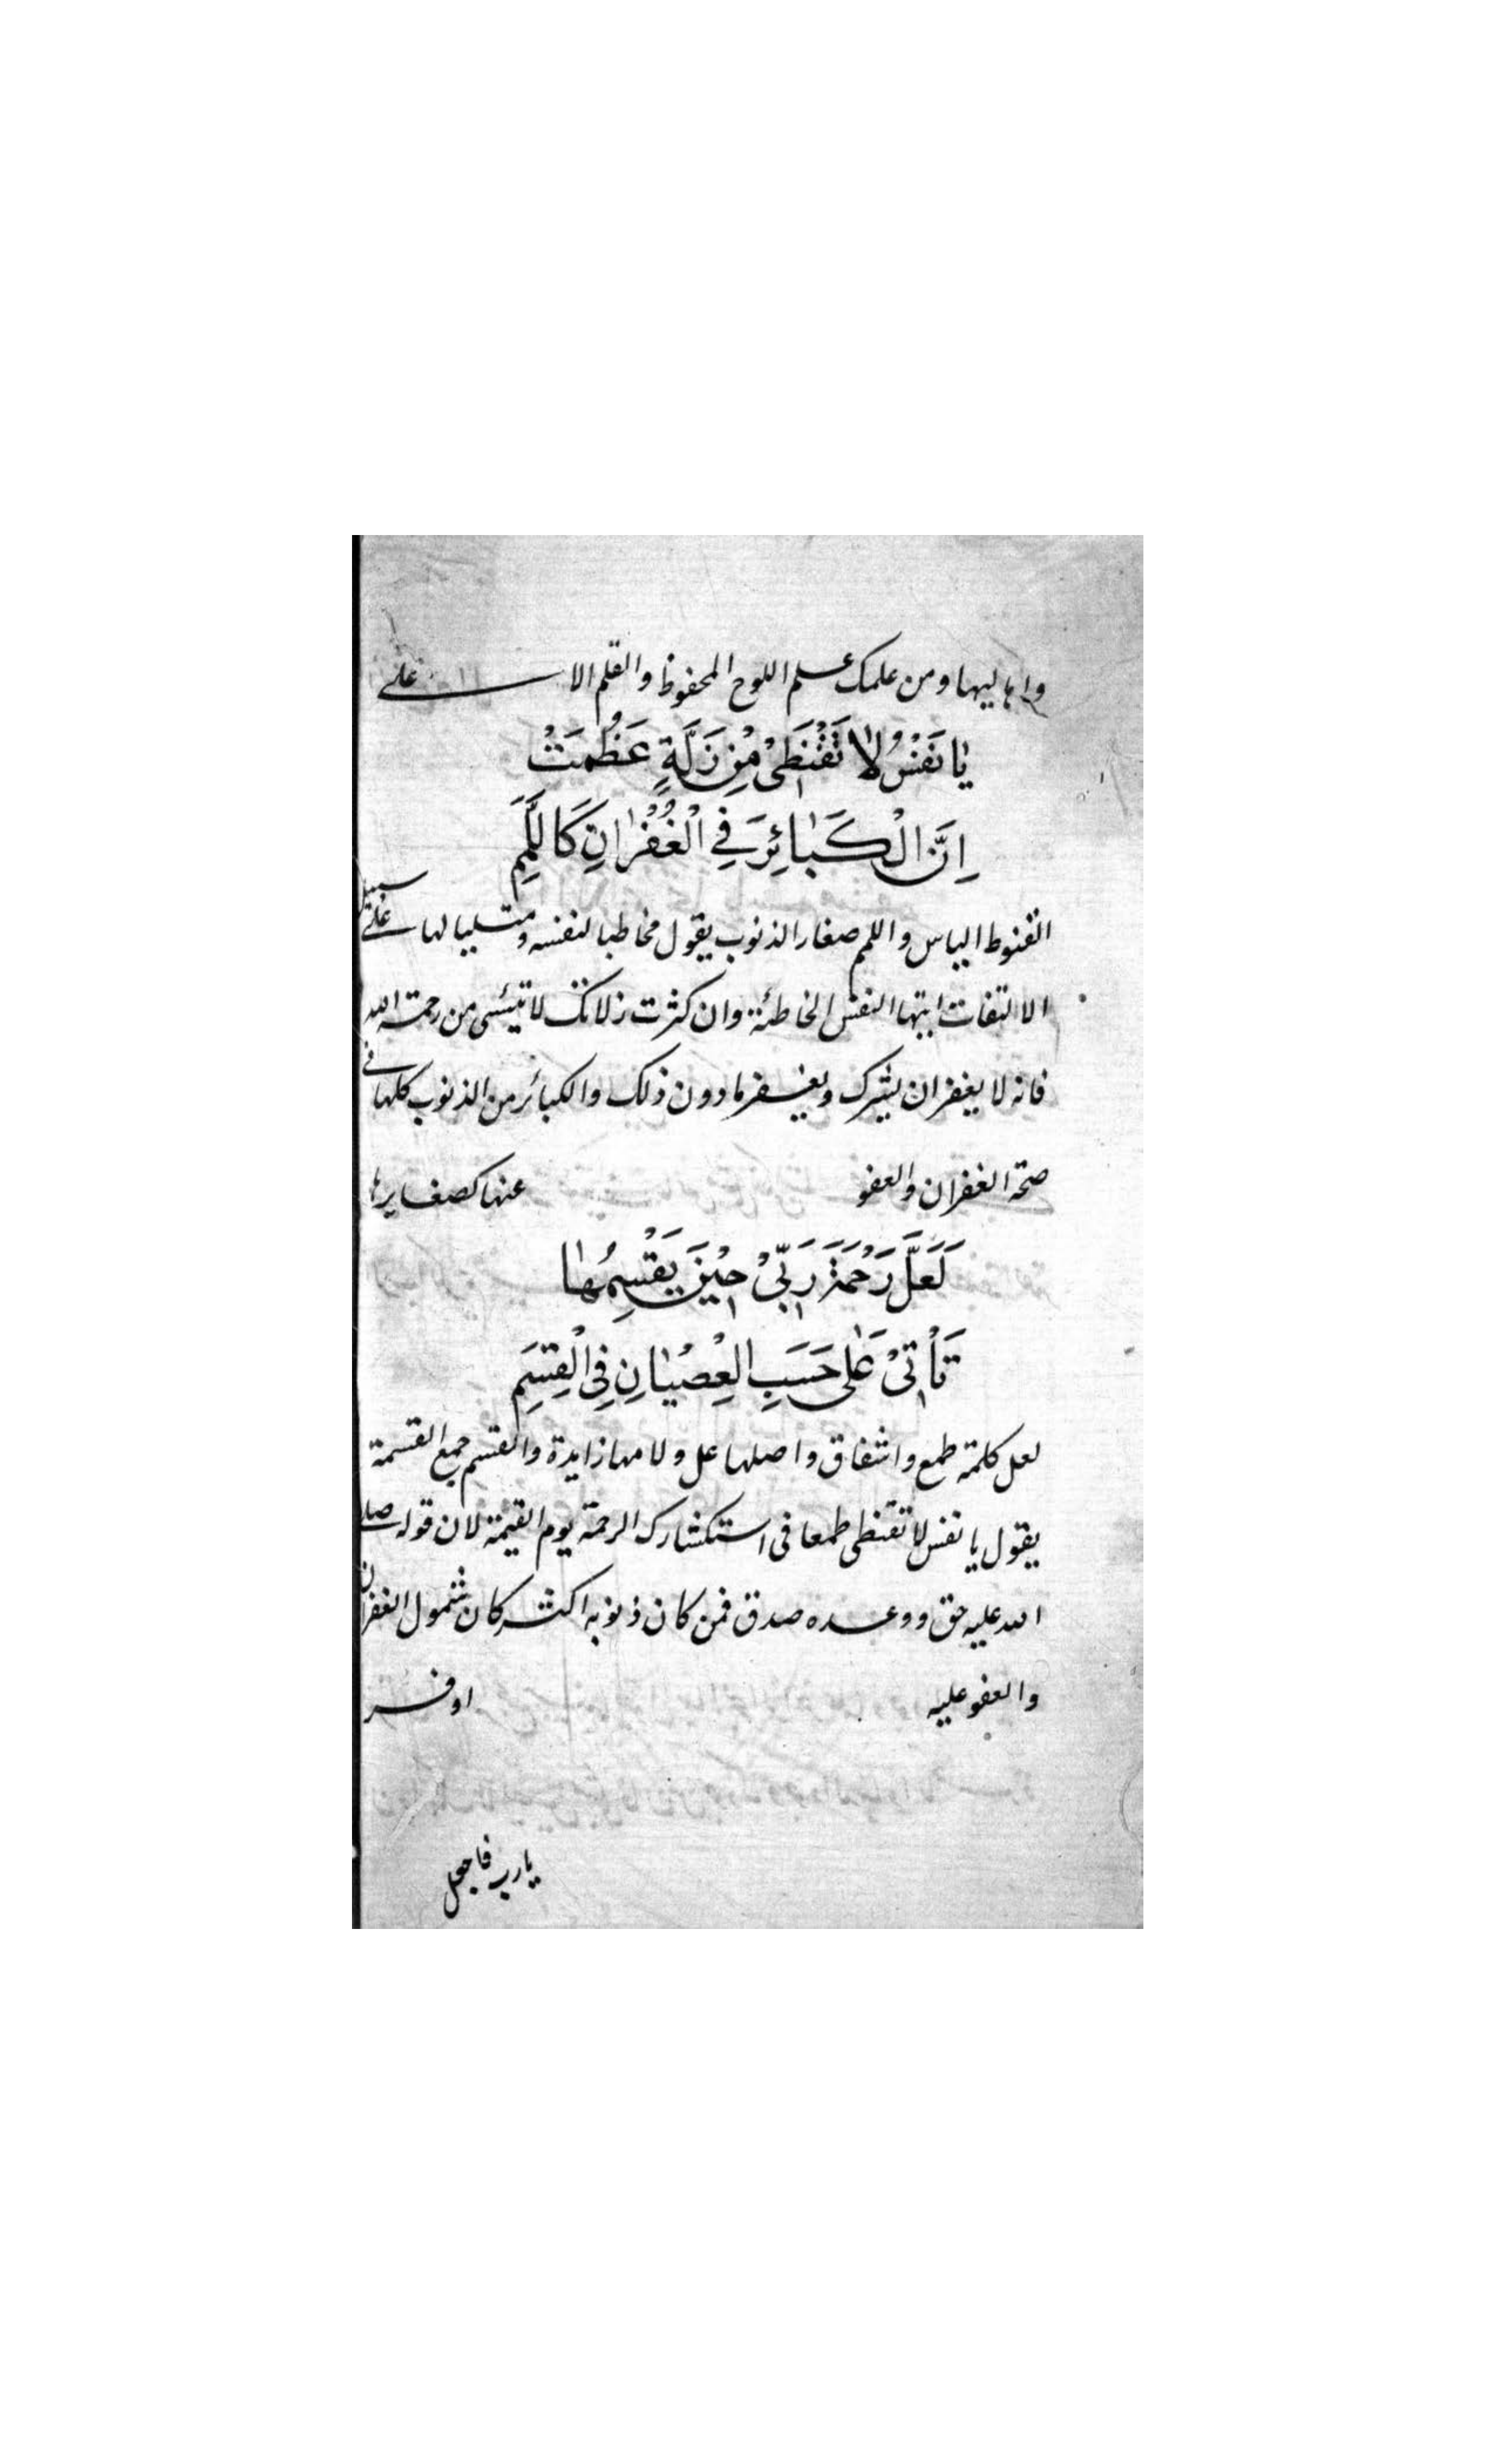 واهاليها ومن علمك علم اللوح المحفوظ والقلم الاعلى
يَا نَفْسُ لَا تَقْنَطِيْ مِنْ زَلَّةٍ عَظُمَتْ
اِنَّ الْكَبَائِرَ فِي الْغُفْرَانِ كَاللَّمَمِ
القنوط الياس واللمم صغار الذنوب يقول مخاطبا لنفسه ومتسليا لها على سبيل
الالتفات ايتها النفس الخاطئة وان كثرت زلاتك لا تيئسى من رحمة الله
فانه لا يغفر ان يشرك ويغفر مادون ذلك والكبائر من الذنوب كلها في
صحة الغفران والعفو عنها كصغايرها
لَعَلَّ رَحْمَةَ رَبِّيْ حِيْنَ يَقْسِمُهَا
تَأْتِيْ عَلٰى حَسَبِ الْعِصْيَانِ فِي الْقِسَمِ
لعل كلمة طمع واشفاق واصلها عل ولامها زايدة والقسم جمع القسمة
يقول يا نفس لا تقنطى طمعا فى استكثارك الرحمة يوم القيمة لان قوله صلى
الله عليه حق ووعده صدق فمن كان ذنوبه اكثر كان شمول الغفران
والعفو عليه اوفر
يارب فاجعل